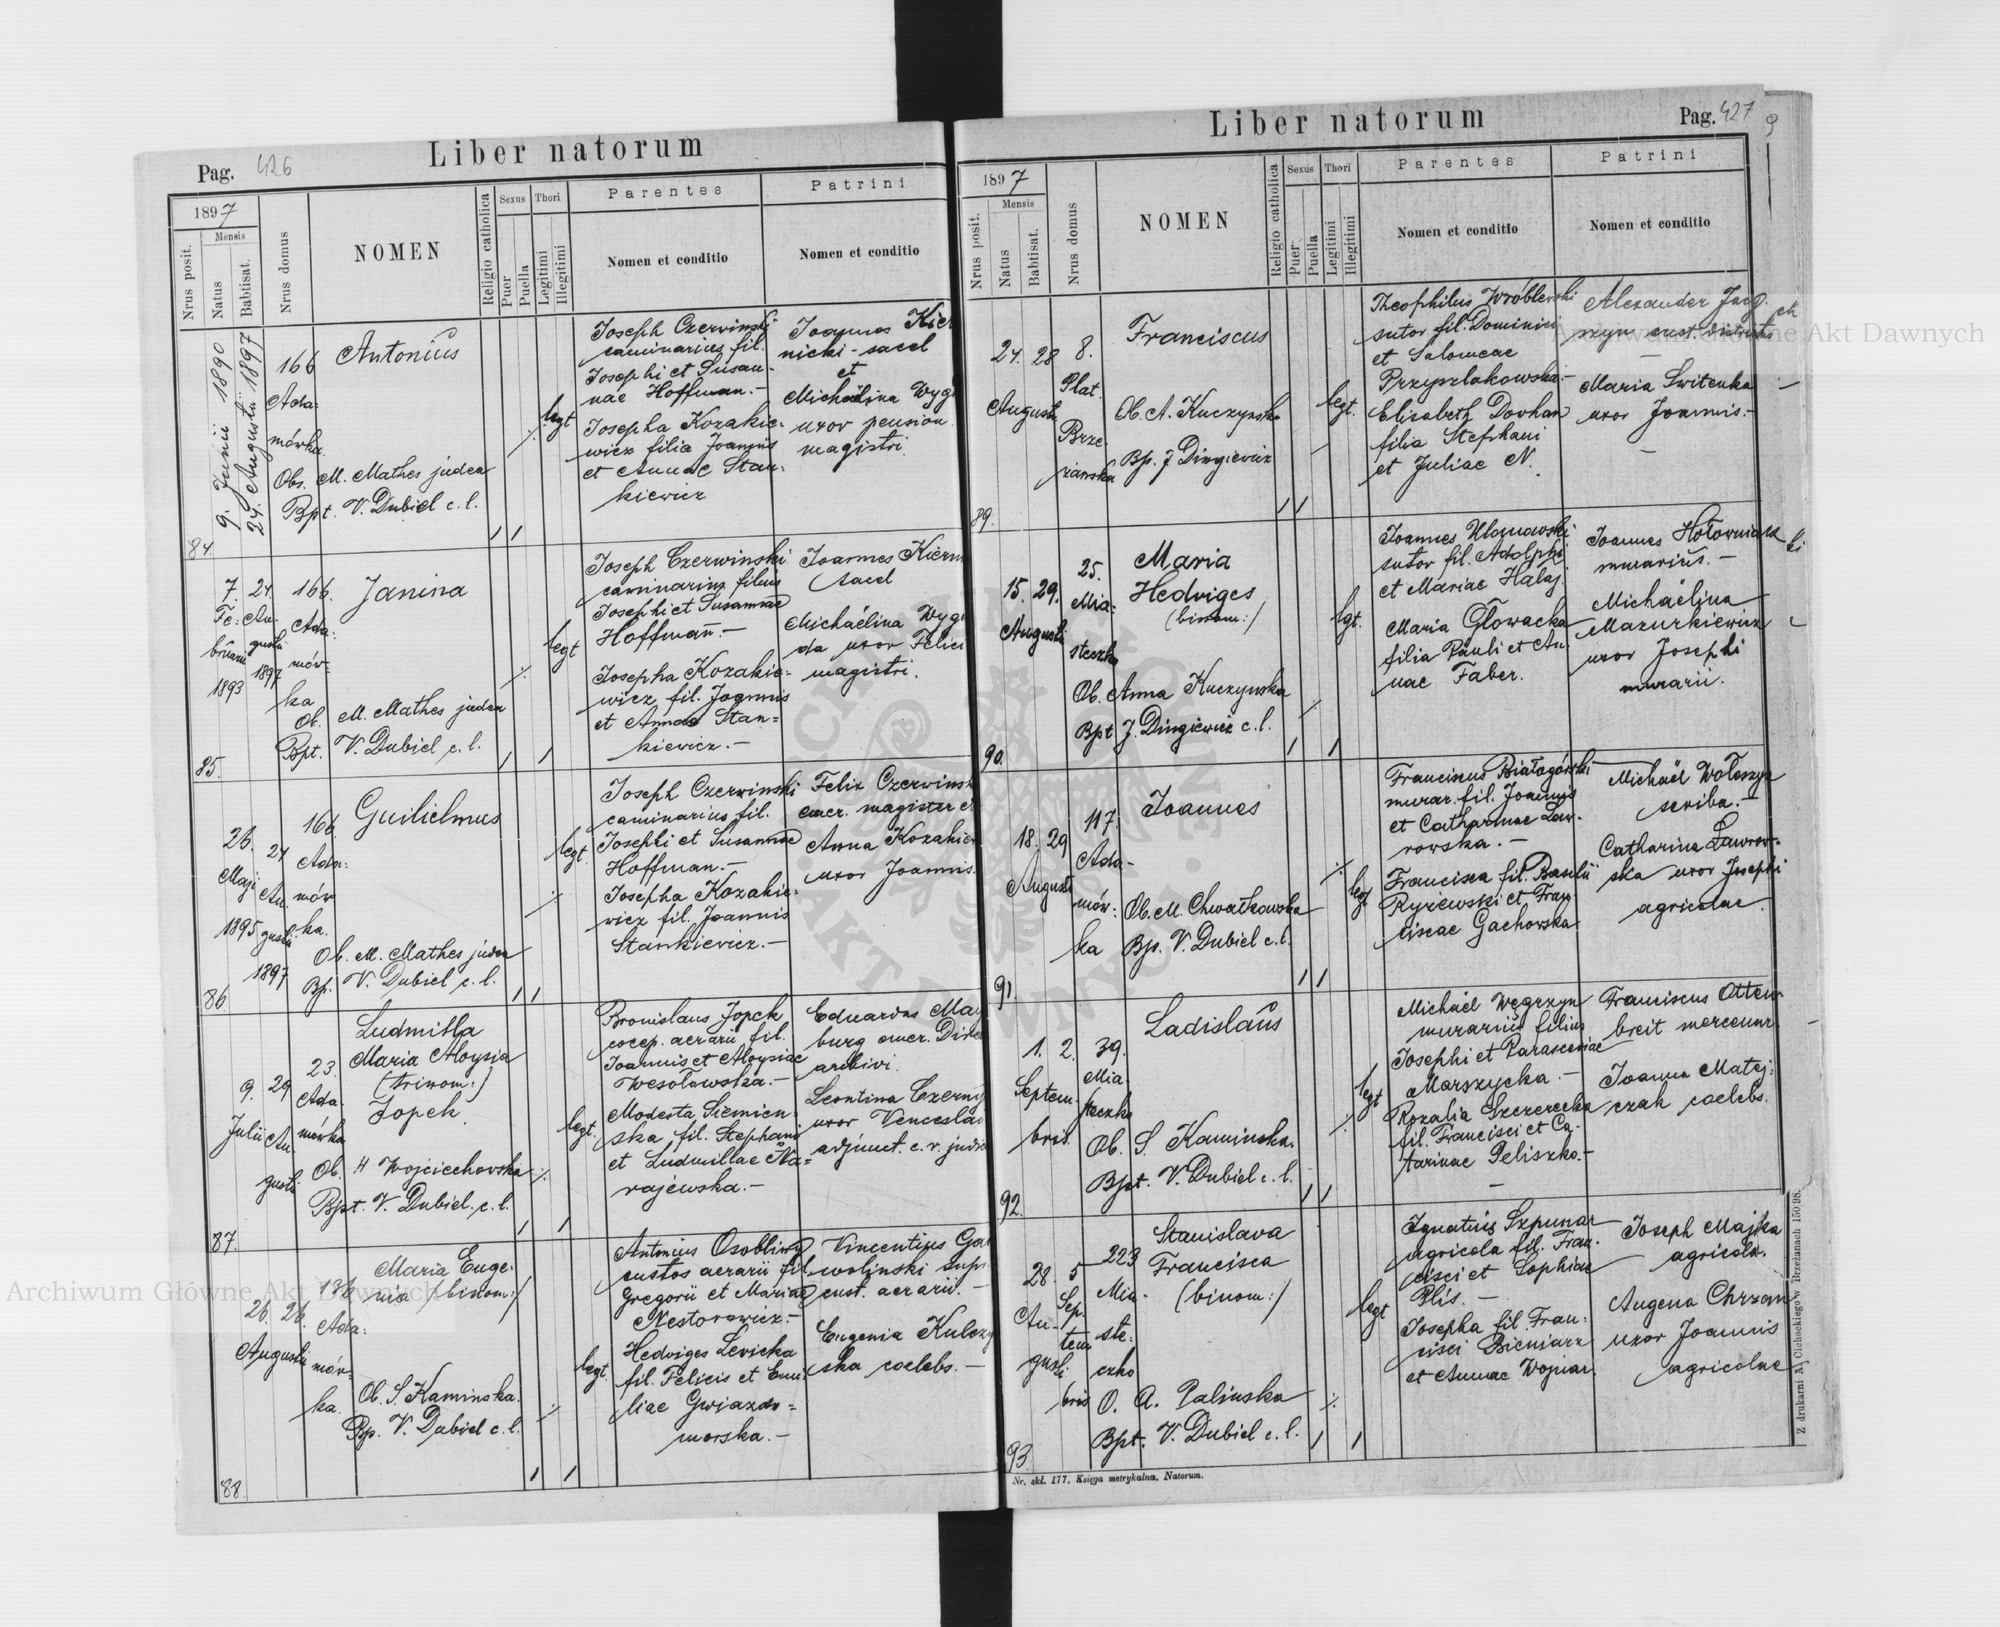 Pag. 426
Liber natorum
1897
Nrus posit.
Mensis
Natus
Babtisat.
Nrus domus
NOMEN
Religio catholica
Sexus
Puer
Puella
Thori
Legitimi
Illegitimi
Parentes
Nomen et conditio
Patrini
Nomen et conditio
84.
9. Junii 1890
24. Augusti 1897
166
Ada:
mówka.
Antonius
Obs. M. Mathes judea
Bpt. V. Dubiel c. l.
legt
Joseph Czerwinski
caminarius fil.
Josephi et Susan-
nae Hoffman.-
Josepha Kozakie-
wicz filia Joannis
et Annae Stan-
kiewicz
Joannes
nicki - sacel
et
Michaëlina Wyg
uxor pension
magistri.
85.
7.
Fe:
bruarii
1893
24.
Au-
gusti
1897
166.
Ada:
mów-
ka
Janina
Ob. M. Mathes judea
Bpt. V. Dubiel c. l.
legt
Joseph Czerwinski
caminarius filius
Josephi et Susannae
Hoffman.-
Josepha Kozakie-
wicz fil. Joannis
et Annae Stan-
kiewicz.-
Joannes
sacel
Michaëlina Wyg
da uxor Felici
magistri.
86
26.
Maji
1895
24
Au.
gusti
1897
166.
Ada:
mów
ka.
Guilielmus
Ob. M. Mathes judea
Bp. V. Dubiel c. l.
legt.
Joseph Czerwinski
caminarius fil.
Josephi et Susannae
Hoffman.-
Josepha Kozakie-
wicz fil. Joannis
Stankiewicz.-
Felix Czerwinsk
emer. magister e
Anna Kozakiew
uxor Joannis.
87.
9.
Julii
29
Au.
gusti
23.
Ada.
mówka
Ludmilla
Maria Aloysia
(trinom:)
Jopek
Ob. H Wojciechowska
Bpt. V. Dubiel. c. l.
legt.
Bronislaus Jopek
rocep. aerarii fil.
Joannis et Aloysiae
Wesołowska.-
Modesta Siemien-
ska fil. Stephani
et Ludmillae Na-
rajewska.-
Eduardus May
burg emer. Dire
archivi.
Leontina Czerny
uxor Venceslai
adjunct. c. r. judi
88.
26.
Augusti
26.
136
Ada:
mów-
ka.
Maria Euge-
nia (binom:)
Ob. S. Kaminska.
Bp. V. Dubiel c. l.
legt.
Antonius
custos aerarii fil.
Gregorii et Mariae
Nestorowicz.-
Hedviges Levicka
fil. Felicis et Emi
liae Gwiazdo-
morska.-
Vincentius Ga
wolinski
cust. aerarii.-
Eugenia Kulczy
ska coelebs.-
Liber natorum
Pag. 427
1897
Nrus posit.
Mensis
Natus
Babtisat.
Nrus domus
NOMEN
Religio catholica
Sexus
Puer
Puella
Thori
Legitimi
Illegitimi
Parentes
Nomen et conditio
Patrini
Nomen et conditio
89.
24. 28
Augusti
8.
Plat.
Brze-
żańska
Franciscus
Ob. A. Kuczynska
Bp. J Dingiewicz
legt.
Theophilus Wróblewski
sutor fil. Dominici
et Salomeae
Przyszlakowska.-
Elisabeth Dovhan
filia Stephani
et Juliae N.
Alexander
Maria Switenka
uxor Joannis.-
90.
15. 29.
Augusti
25.
Mia-
steczko
Maria
Hedviges
(binom:)
Ob. Anna Kuczynska
Bpt J. Dingiewicz c. l.
lgt.
Joannes
sutor fil. Adolphi
et Mariae Halaj.
Maria Głowacka
filia Pauli et An-
nae Faber.
Joannes Hołowniak
murarius.-
Michaëlina
Mazurkiewicz
uxor Josephi
murarii.
91.
18. 29
Augusti
117.
Ada-
mów-
ka
Joannes
Ob. M. Chwałkowska
Bp. V. Dubiel c. l.
legt
Franciscus Białogórski
murar. fil. Joannis
et Catharinae Law-
rowska.-
Francisca fil. Basilii
Ryżewski et Fran
ciscae Gachowska
Michaël Wołoszyn
scriba.-
Catharina Ławrow-
ska uxor Josephi
agricolae.
92.
1. 2.
Septem.
bris.
39.
Mia
steczko
Ladislaus
Ob. S. Kaminska.
Bpt. V. Dubiel c. l.
legt
Michaël Węgrzyn
murarius filius
Josephi et Parasceviae
Marszycka.-
Rozalia Szczerecka
fil. Francisci et Ca-
tarinae Peliszko.-
Franciscus Otten
breit mercenar.
Joanna Matej-
czak coelebs.
93.
28.
Au-
gusti
5
Sep.
tem
bris
223
Mia-
ste-
czko
Stanislava
Francisca
(binom:)
O. A. Palinska
Bpt. V. Dubiel c. l.
legt
Ignatius Szpunar
agricola fil. Fran-
cisci et Sophiae
Plis.-
Josepha fil. Fran-
cisci Bieniarz
et Annae Wojnar.
Joseph Majka
agricola.
Augena Chrzan
uxor Joannis
agricolae
Nr. skł. 177. Księga metrykalna. Natorum.
Z drukarni A. Cichockiego w Brzeżanach 150 98.
Archiwum Główne Akt Dawnych
Archiwum Główne Akt Dawnych